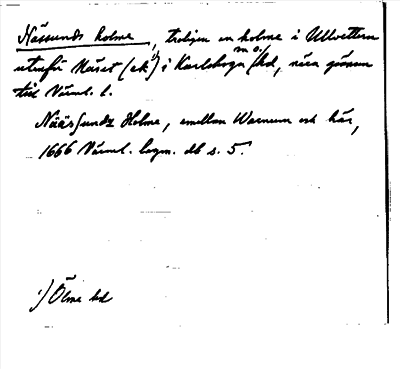 Nässunds holme, troligen en holme i Ullvettern
utanför Näset (ek¹) i Karlskoga sn o. bd, nära gränsen
till Värml. l.
Näässundz Holme, emellan Warnum och här,
1666 Värml. lagm. db s. 5.
¹) Ölme hd